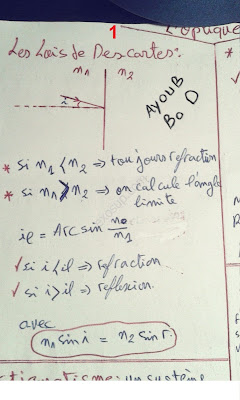 1
L'optique
Les Lois de Descartes:
n1 n2
i
AYOUB
BoD
* si n1 < n2 => toujours refraction
* si n1 > n2 => on calcule l'angle
limite
il = Arc sin n2/n1
✓ si i < il => refraction
✓ si i > il => reflexion
avec
n1 sin i = n2 sin r.
un système